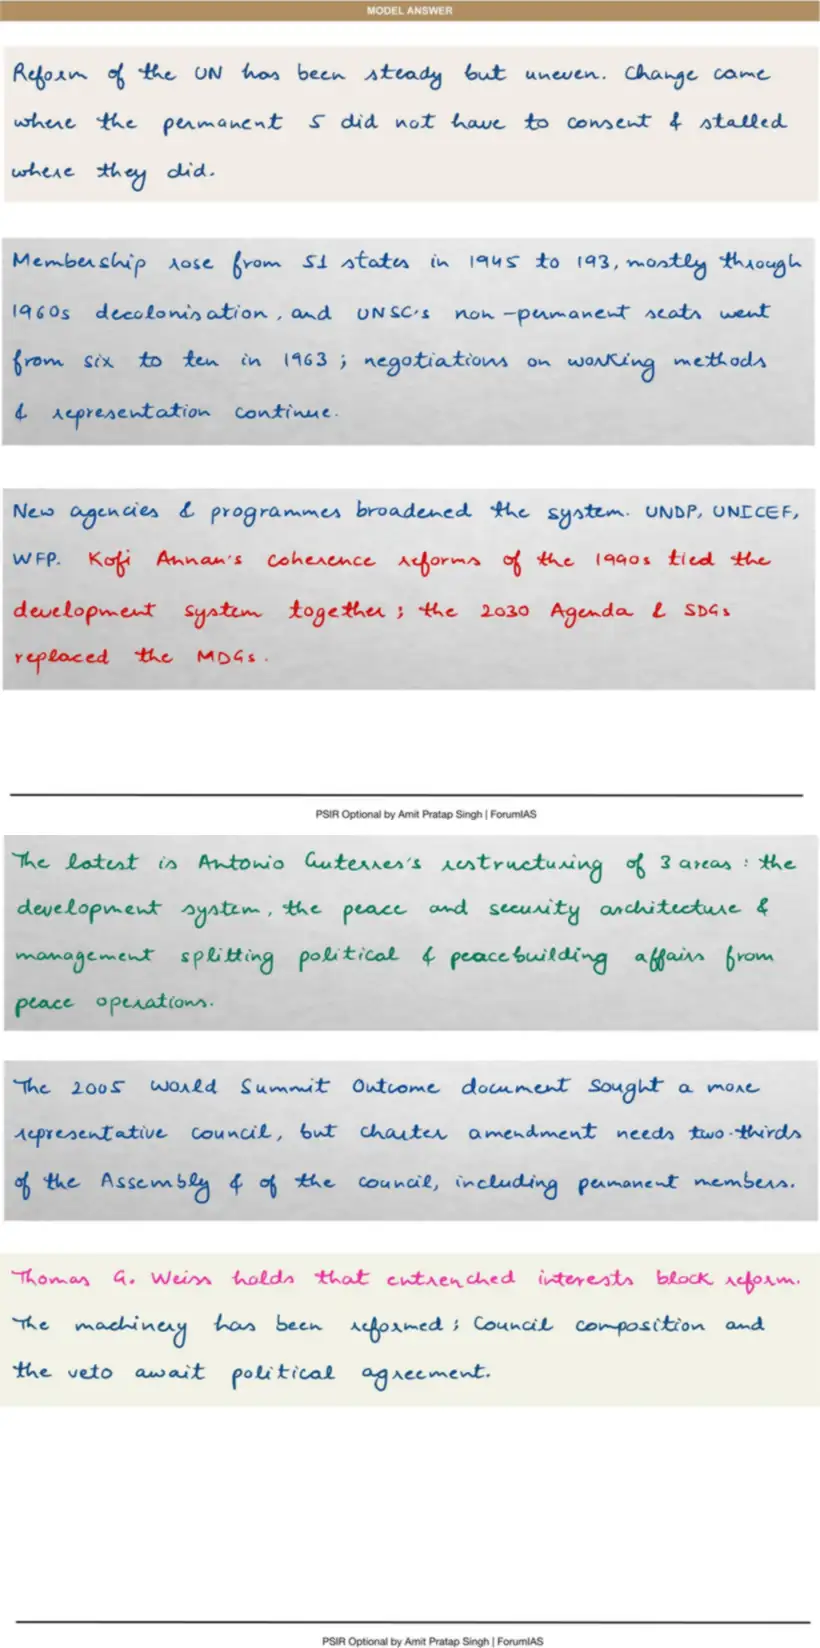 MODEL ANSWER
Reform of the UN has been steady but uneven. Change came
where the permanent 5 did not have to consent & stalled
where they did.
Membership rose from 51 states in 1945 to 193, mostly through
1960s decolonisation, and UNSC's non-permanent seats went
from six to ten in 1963; negotiations on working methods
& representation continue.
New agencies & programmes broadened the system. UNDP, UNICEF,
WFP. Kofi Annan's coherence reforms of the 1990s tied the
development system together; the 2030 Agenda & SDGs
replaced the MDGs.
PSIR Optional by Amit Pratap Singh | ForumIAS
The latest is Antonio Guterres's restructuring of 3 areas: the
development system, the peace and security architecture &
management splitting political & peacebuilding affairs from
peace operations.
The 2005 World Summit Outcome document sought a more
representative council, but charter amendment needs two-thirds
of the Assembly & of the council, including permanent members.
Thomas G. Weiss holds that entrenched interests block reform.
The machinery has been reformed; Council composition and
the veto await political agreement.
PSIR Optional by Amit Pratap Singh | ForumIAS